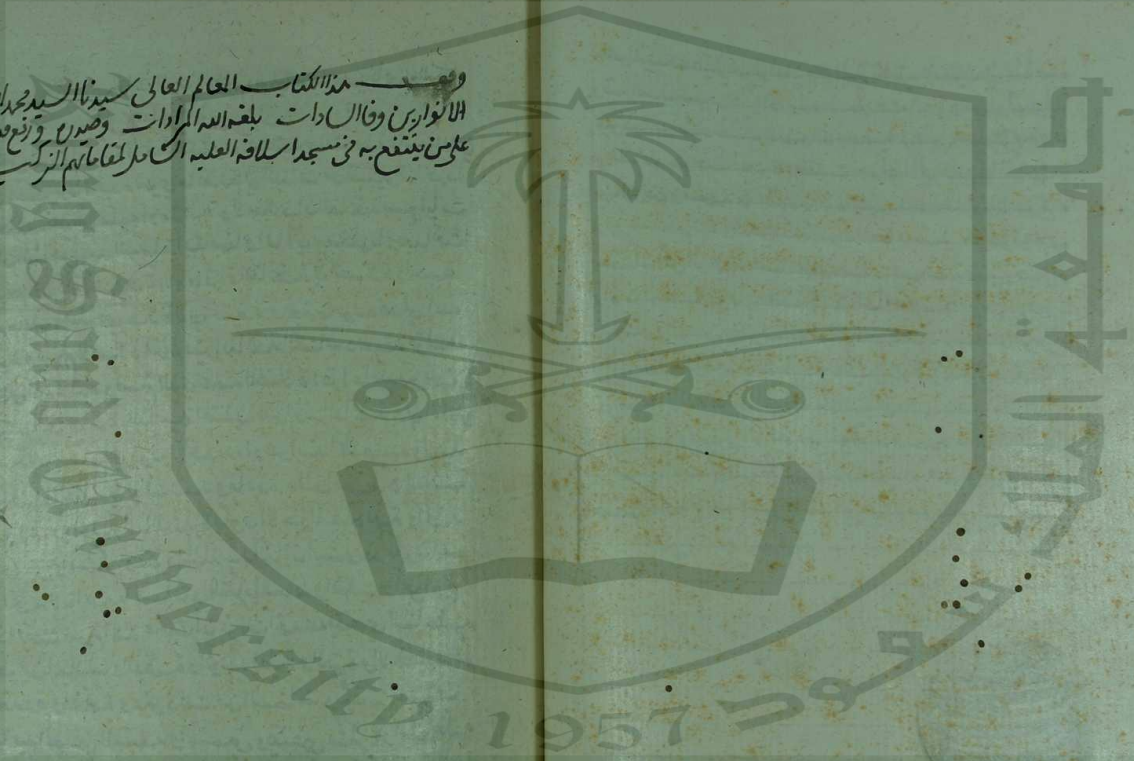 وقف هذا الكتاب العالم العالى سيدنا السيد محمد
الانوار بن وفا السادات بلغه الله المرادات وصيره ورفع
على من ينتفع به فى مسجد اسلافه العليه الشامل لمقاماتهم
جامعة الملك سعود
King Saud University
1957